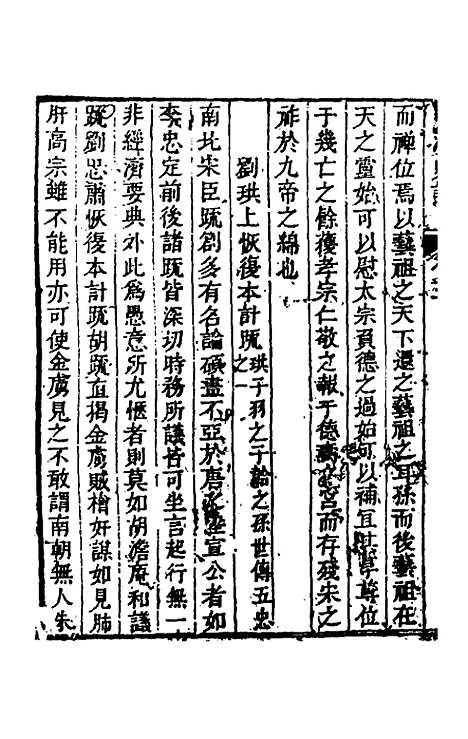 而禪位焉以藝祖之天下還之藝祖之耳孫而後藝祖在
天之靈始可以慰太宗負德之過始可以補且享尊位
于幾亡之餘獲孝宗仁敬之報于德壽宮而存殘宋之
祚於九帝之綿也
劉珙上恢復本計疏珙子羽之子韐之孫世傳五忠之一
南北宋臣疏劄多有名論碩畫不亞於唐陸宣公者如
李忠定前後諸疏皆深切時務所議皆可坐言起行無一
非經濟要典外此為愚意所尤愜者則莫如胡澹庵和議
疏劉忠肅恢復本計疏胡疏直揭金虜賊檜奸謀如見肺
肝高宗雖不能用亦可使金虜見之不敢謂南朝無人朱